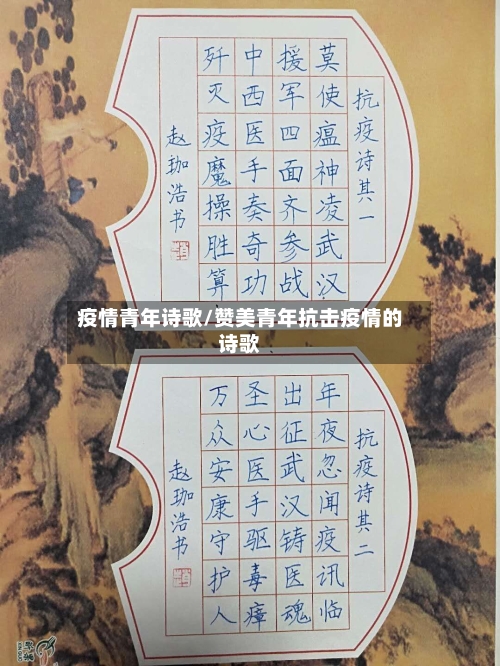 抗疫诗其一
莫使瘟神凌武汉
援军四面齐参战
中西医手奏奇功
歼灭疫魔操胜算
赵珈浩书
疫情青年诗歌/赞美青年抗击疫情的
诗歌
抗疫诗其二
年夜忽闻疫讯临
出征武汉铸医魂
圣心医手驱毒瘴
万众安康守护人
赵珈浩书